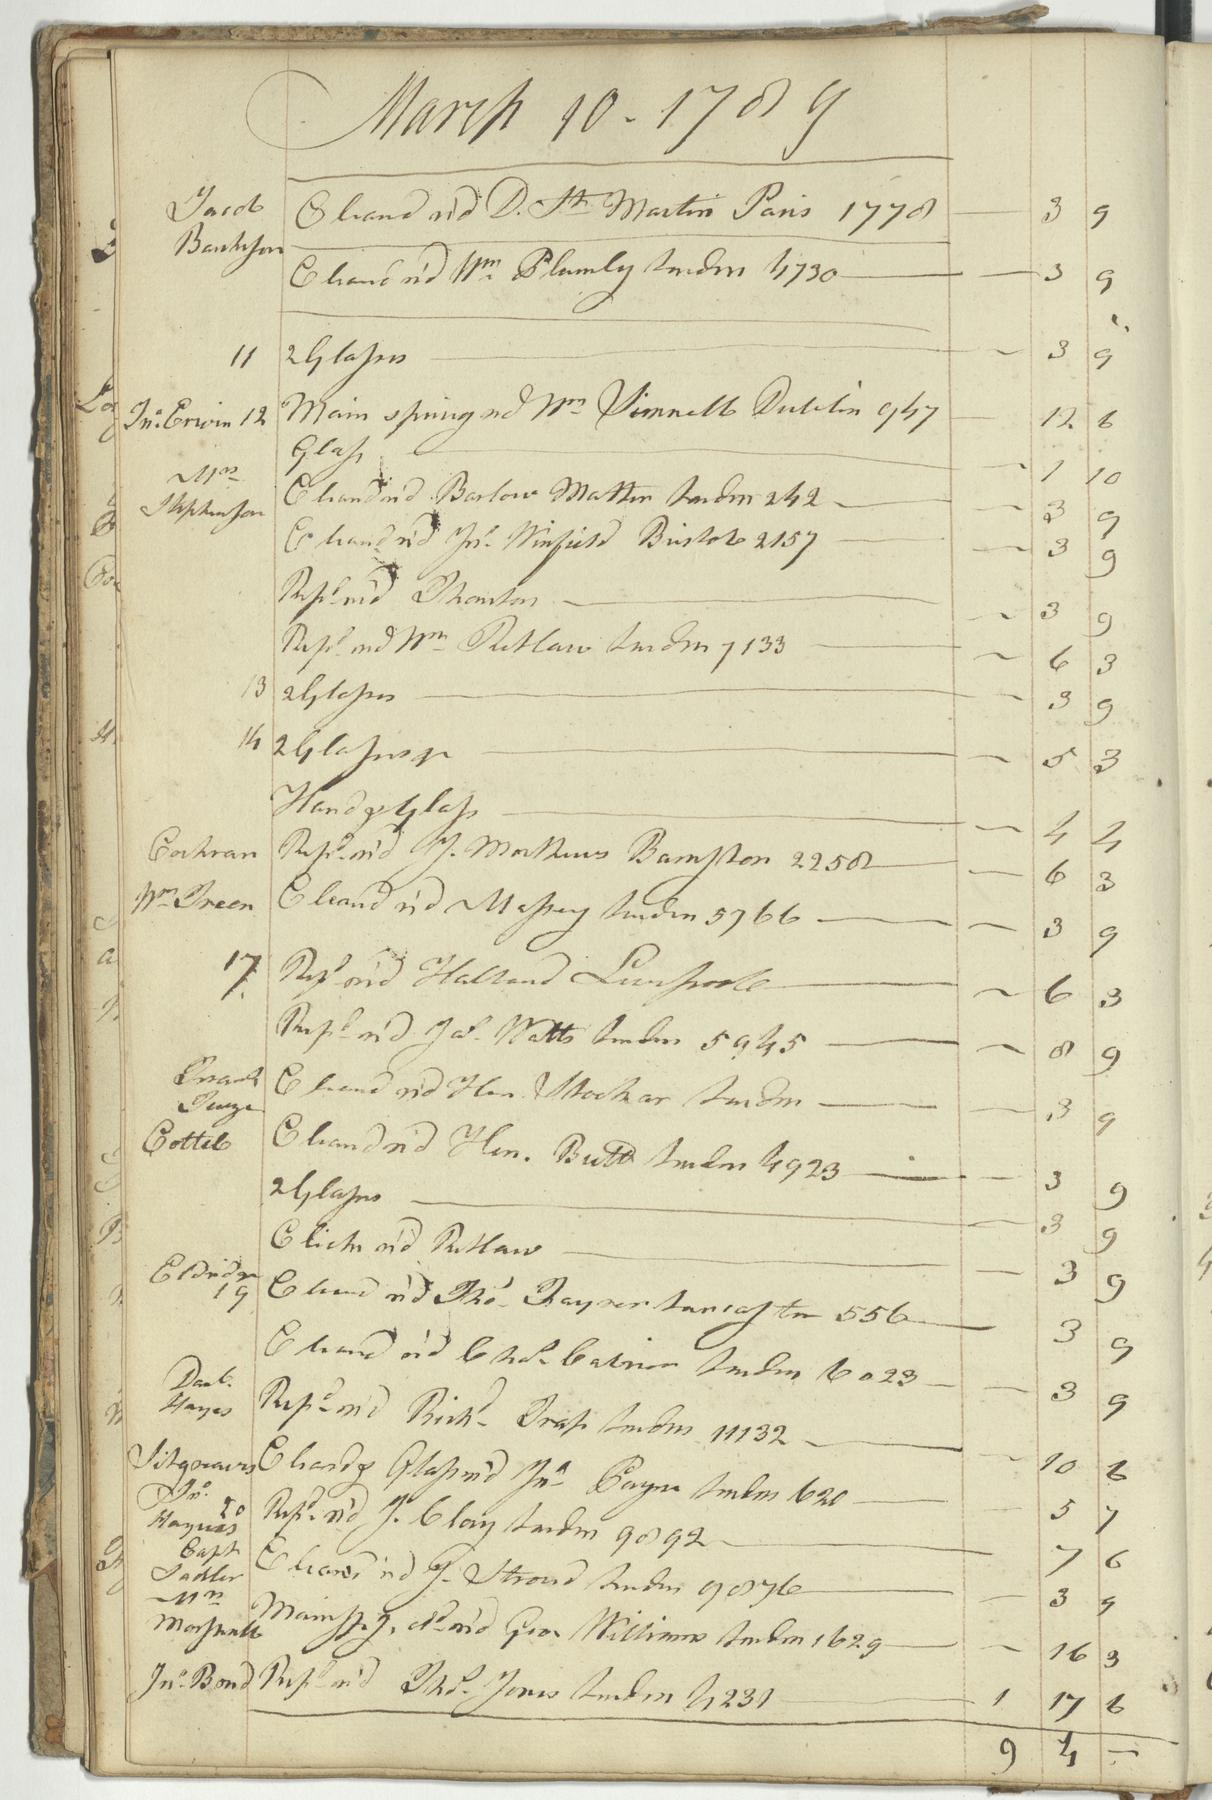 March 10 - 1789
Jacob Bankson Cleand nd D. St. Martin Paris 1778 — 3 9
Cleand nd Wm Plumly London 4730 — 3 9
11 2 Glasses — 3 9
Jno. Erwin 12 Main spring nd Wm Vimnell Dublin 947 — 12 6
Glass — 1 10
Mrs Stephenson Cleand nd Barlow Matten London 242 — 3 9
Cleand nd Jno. Winfield Bristol 2157 — 3 9
Repd nd Thornton — 3 9
Repd nd Wm Rutlaw London 7133 — 6 3
13 2 Glasses — 3 9
14 2 Glasses — 5 3
Hand & Glass — 4 4
Cochran Repd nd J. Mathews Bampton 2258 — 6 3
Wm Green Cleand nd Massey London 5766 — 3 9
17 Repd nd Halland Liverpoole — 6 3
Repd nd Jas. Watts London 5945 — 8 9
Cleand nd Hen. Stockar London — 3 9
Cottel Cleand nd Hen. Butt London 4923 — 3 9
2 Glasses — 3 9
Click nd Rutlaw — 3 9
19 Cleand nd Thos. Rayner Lancaster 556 — 3 9
Cleand nd Chas. Cabrier London 6023 — 3 9
Danl. Hayes Repd nd Richd. Trap London 11132 — 10 6
Sitgreaves Cleand & Glass nd Jno. Payne London 620 — 5 7
Jno. 20 Repd nd J. Clay London 9892 — 7 6
Capt Sadler Cleand nd J. Stroud London 9876 — 3 9
Mrs Marshall Main spg, &c nd Geo Williams London 1629 — 16 3
Jno. Bond Repd nd Thos. Jones London 4231 — 1 17 6
9 4 —